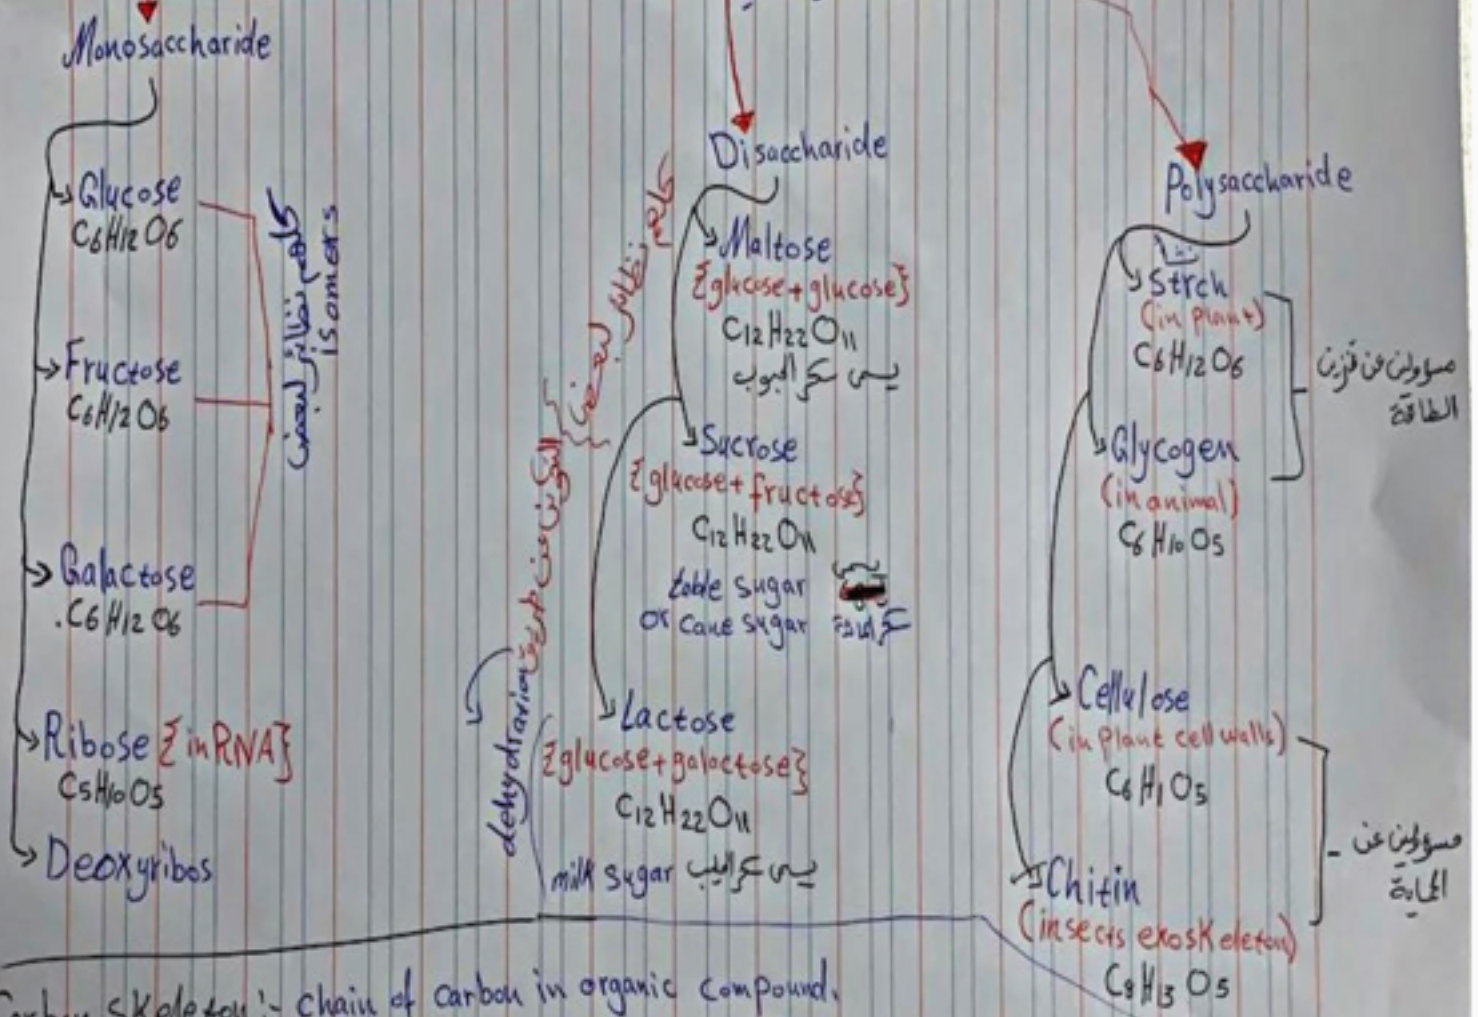 Monosaccharide
Glucose
C6H12O6
Fructose
C6H12O6
Galactose
.C6H12O6
كلهم نظائر لبعض
isomers
Ribose {in RNA}
C5H10O5
Deoxyribos
Disaccharide
كلهم نظائر لبعض
Maltose
{glucose+glucose}
C12H22O11
Sucrose
{glucose+fructose}
C12H22O11
table sugar
or cane sugar
Lactose
{glucose+galactose}
C12H22O11
milk sugar
Polysaccharide
Strch
(in plant)
C6H12O6
Glycogen
(in animal)
C6H10O5
مسؤولين عن تخزين
الطاقة
Cellulose
(in plant cell walls)
C6H1O5
Chitin
(insects exoskeleton)
C8H13O5
مسؤولين عن
الحماية
skeleton:- chain of carbon in organic compound.